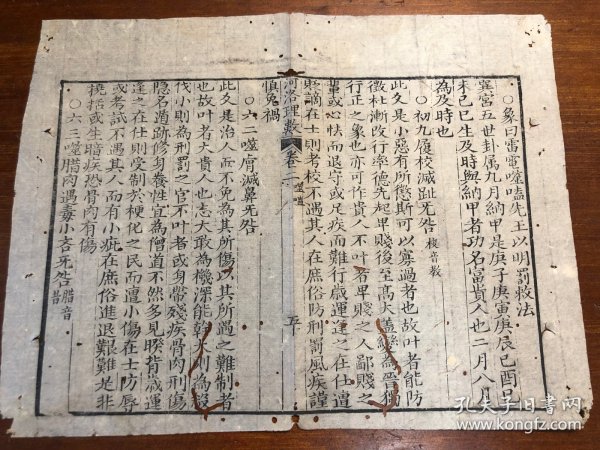 ○象曰雷電噬嗑先王以明罰敕法
巽宮五世卦屬九月納甲是庚子庚寅庚辰己酉己
未己巳生及時與納甲者功名富貴人也二月八月
為及時也
○初九屨校滅趾无咎 校音教
此爻是小惡有所懲斯可以寡過者也故叶者能防
微杜漸改行率德先起卑賤後至高大蓋
行正之象也亦可作貴人不叶者卑賤之人鄙賤之
輩或心怯而退守或足疾而難行歲運逢之在仕遭
貶謫在士則考校不遇其人在庶俗防刑罰風疾謹
慎免禍
河洛理數 卷二 噬嗑 五
○六二噬膚滅鼻无咎
此爻是治人而不免為其所傷以其所遇之難制者
也故叶者大貴人也志大敢為機深能幹大則為
伐小則為刑罰之官不叶者或身帶殘疾骨肉刑傷
隱名遁跡修身養性宜為僧道不然多見睽背歲運
逢之在仕則受制於梗化之民而遭小傷在士防辱
或考試不遇其人而有小疵在庶俗進退艱難是非
撓括或生暗疾恐骨肉有傷
○六三噬腊肉遇毒小吝无咎 腊音昔
孔夫子旧书网
www.kongfz.com